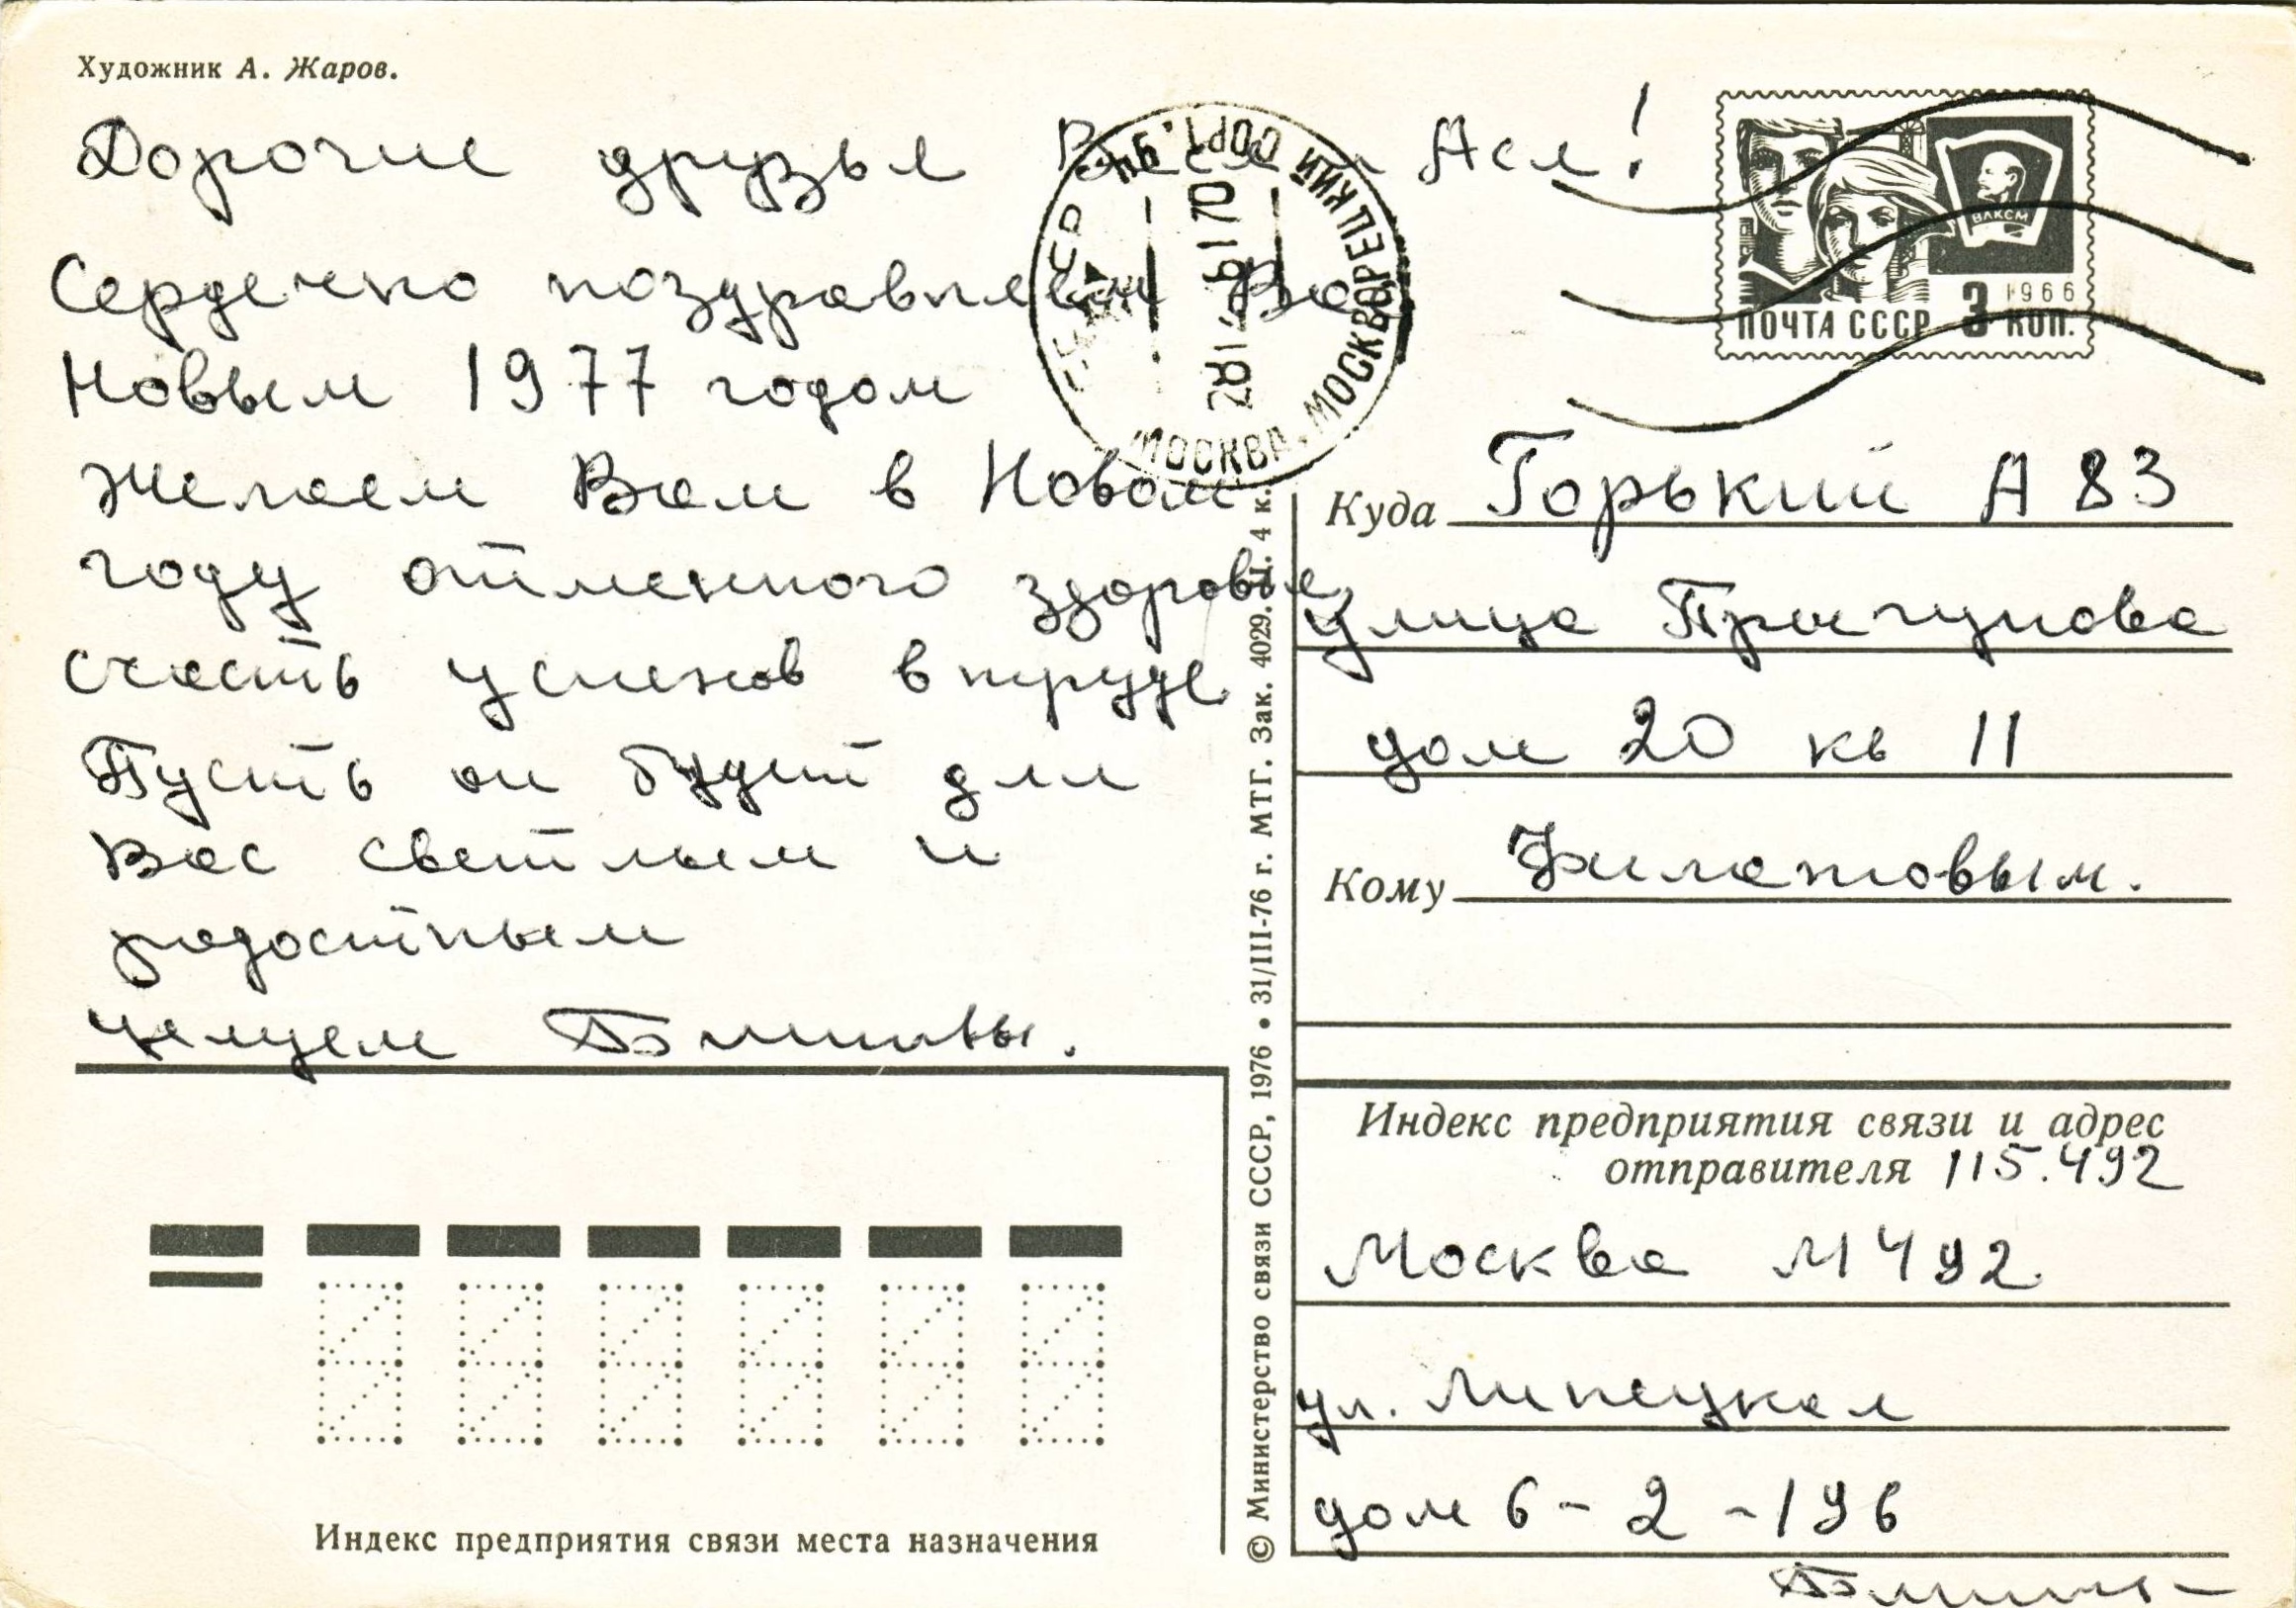 Художник А. Жаров.
Дорогие друзья Вася и Ася!
Сердечно поздравляем Вас
Новым 1977 годом
Желаем Вам в Новом
году отменного здоровья,
счасть успехов в труде
Пусть он будет для
Вас светлым и
радостным
Целуем
ПОЧТА СССР 3 КОП.
1966
ВЛКСМ
МОСКВА. МОСКВОРЕЦКИЙ СОРТ.
Куда Горький А 83
улица Прыгунова
дом 20 кв 11
Кому Филатовым.
Индекс предприятия связи и адрес
отправителя 115.492
Москва М 492
ул. Липецкая
дом 6 - 2 - 196
© Министерство связи СССР, 1976 • 31/III-76 г. МТГ. Зак. 4029. Ц. 4 к.
Индекс предприятия связи места назначения